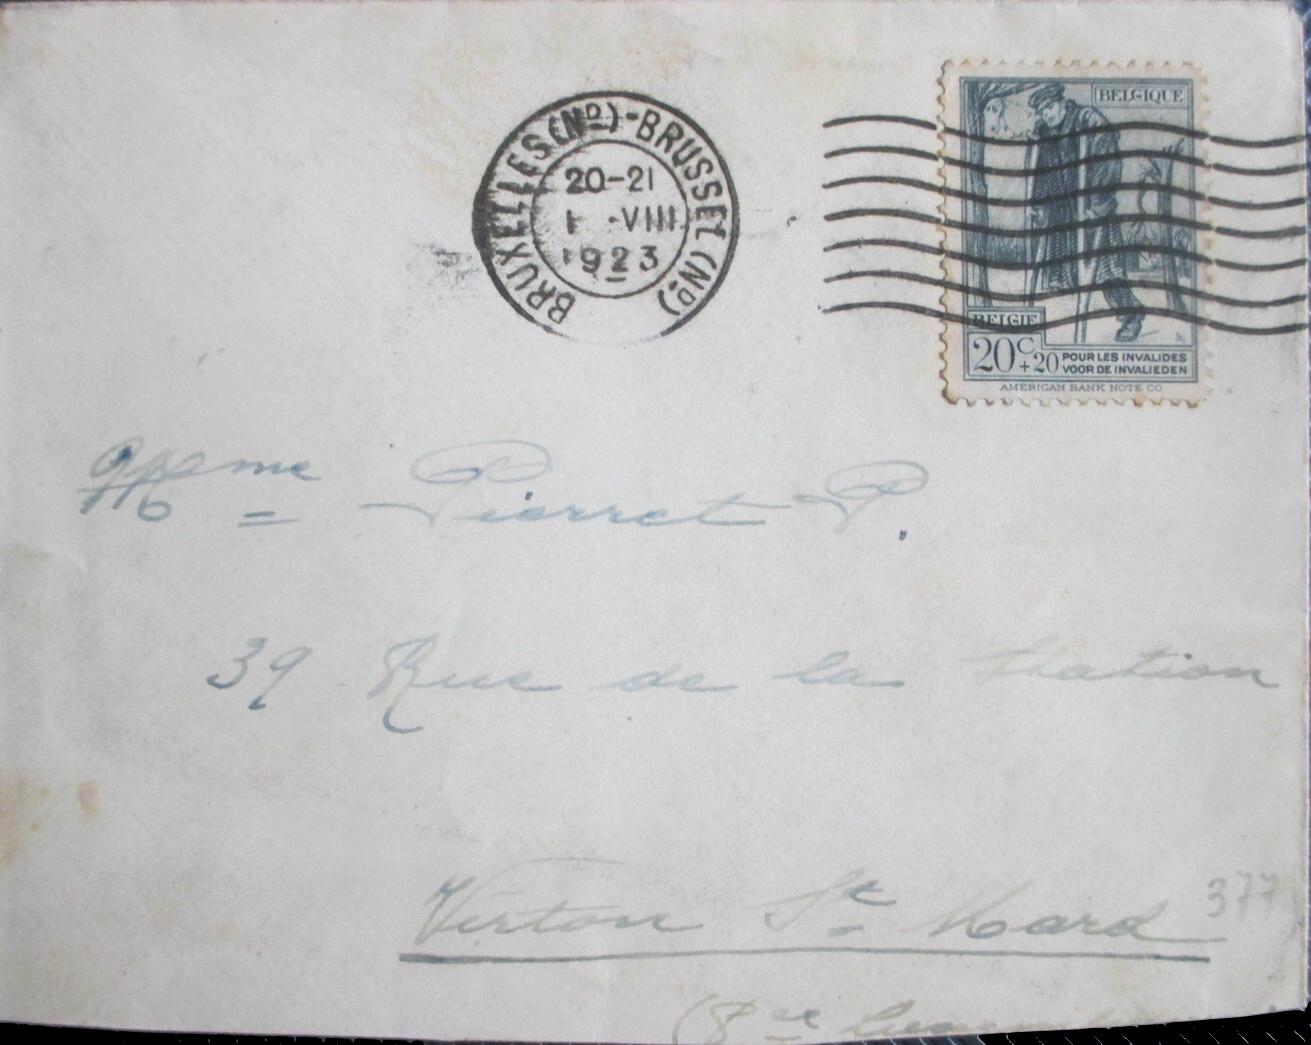 BRUXELLES (ND) - BRUSSEL (ND)
20-21
1 · VIII
1923
BELGIQUE
BELGIE
20C +20
POUR LES INVALIDES
VOOR DE INVALIEDEN
AMERICAN BANK NOTE CO
Mme Pierret P.
39 Rue de la Station
Virton St Mard
377